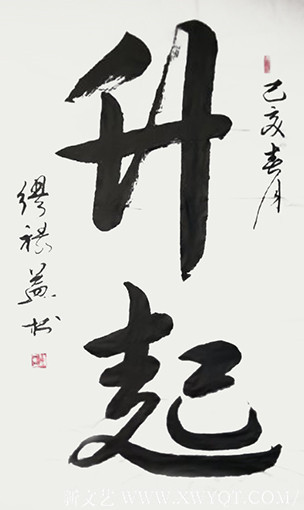 己亥春月
升起
缪禄益书
新文艺 WWW.XWYOT.COM